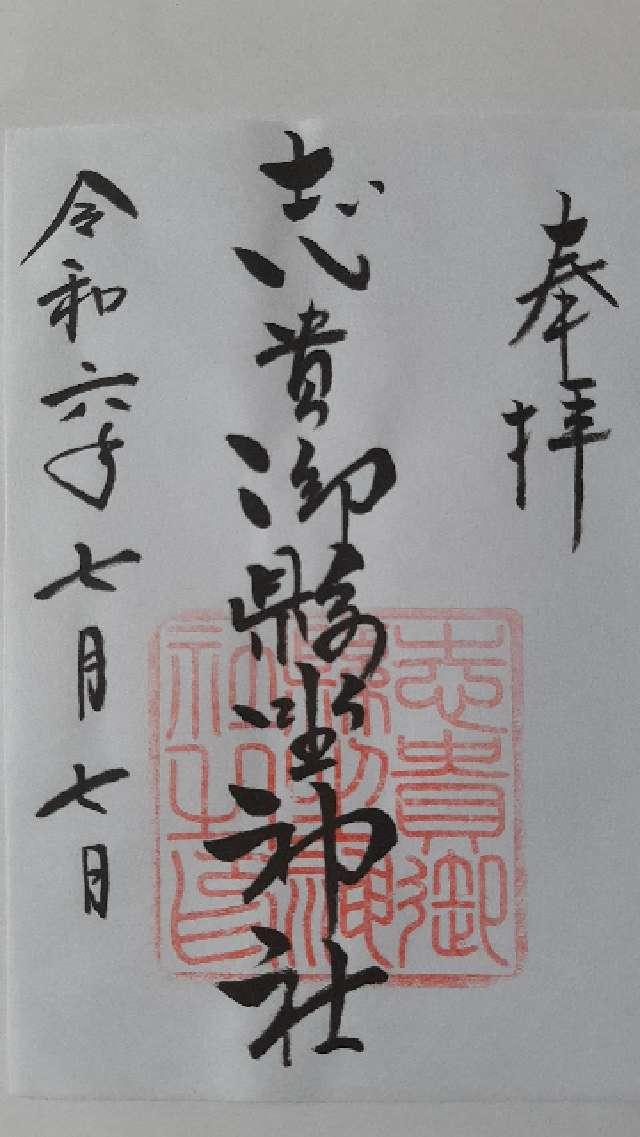 奉拝
志貴御縣坐神社
令和六年七月七日
志貴御
縣坐神
社之印